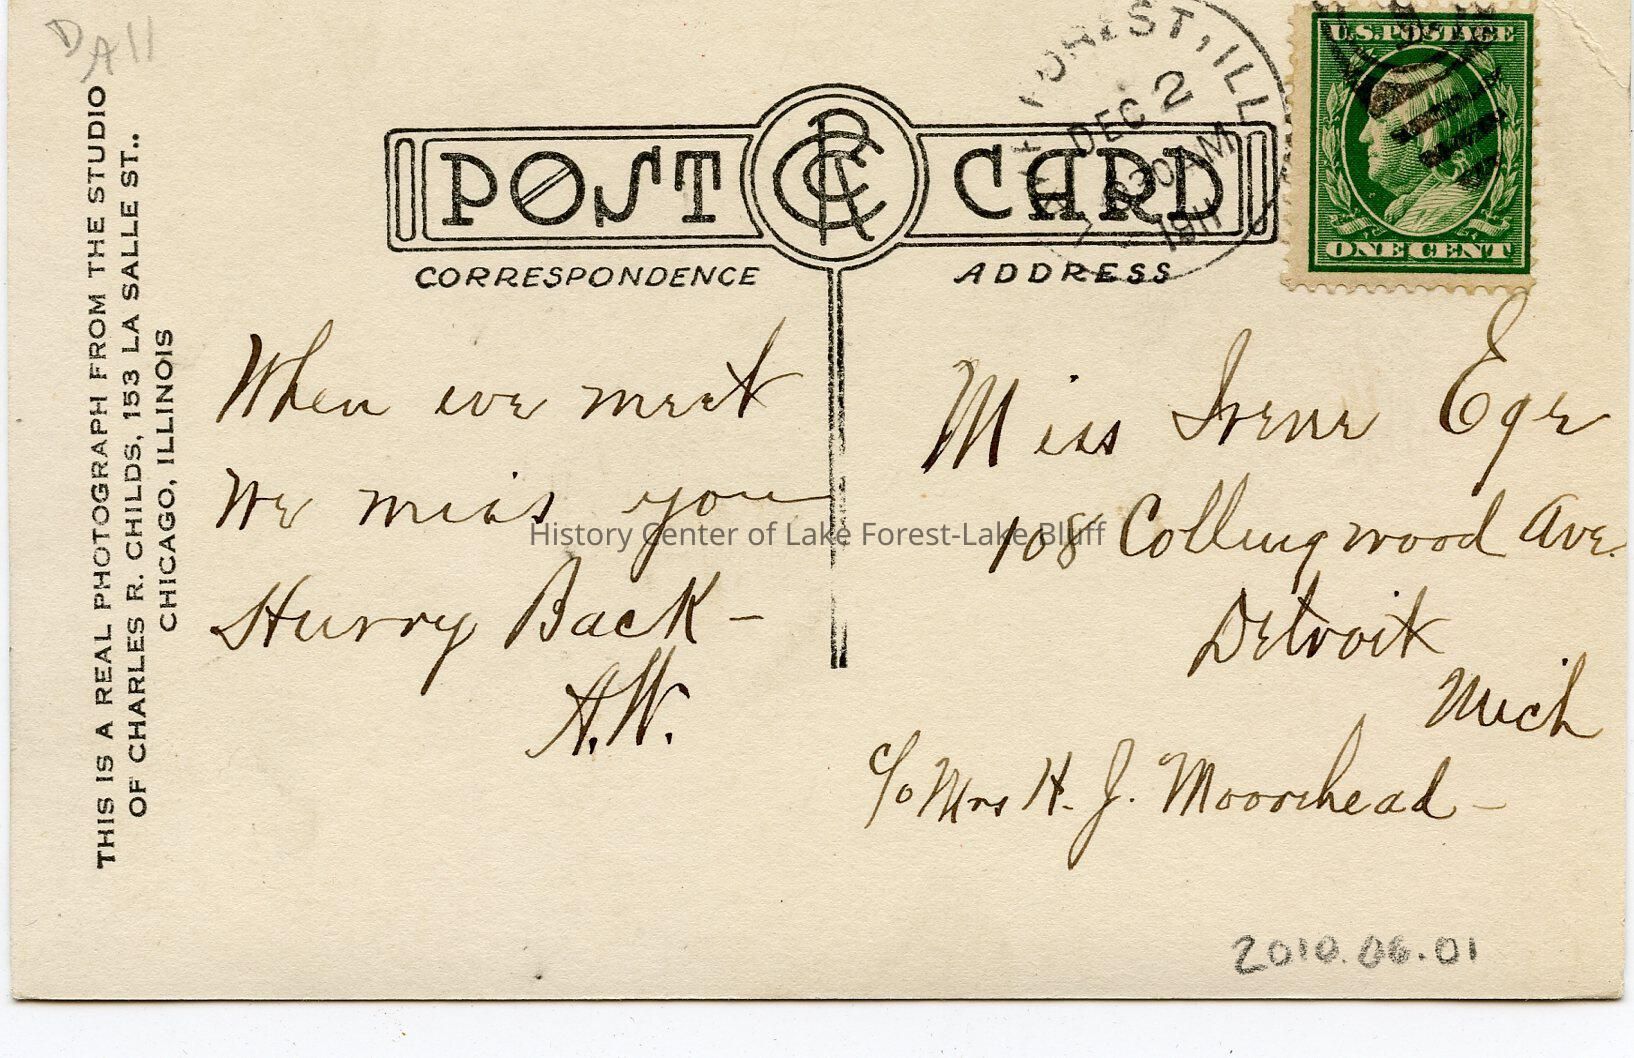 DAll
THIS IS A REAL PHOTOGRAPH FROM THE STUDIO
OF CHARLES R. CHILDS, 153 LA SALLE ST..
CHICAGO, ILLINOIS
POST CRC CARD
CORRESPONDENCE
ADDRESS
FOREST, ILL
DEC 2
30 AM
1911
U.S. POSTAGE
ONE CENT
When we meet
We miss you
Hurry Back –
A.W.
Miss Irene Ege
108 Collingwood Ave.
Detroit
Mich
c/o Mrs H. J. Moorehead –
History Center of Lake Forest-Lake Bluff
2010.06.01